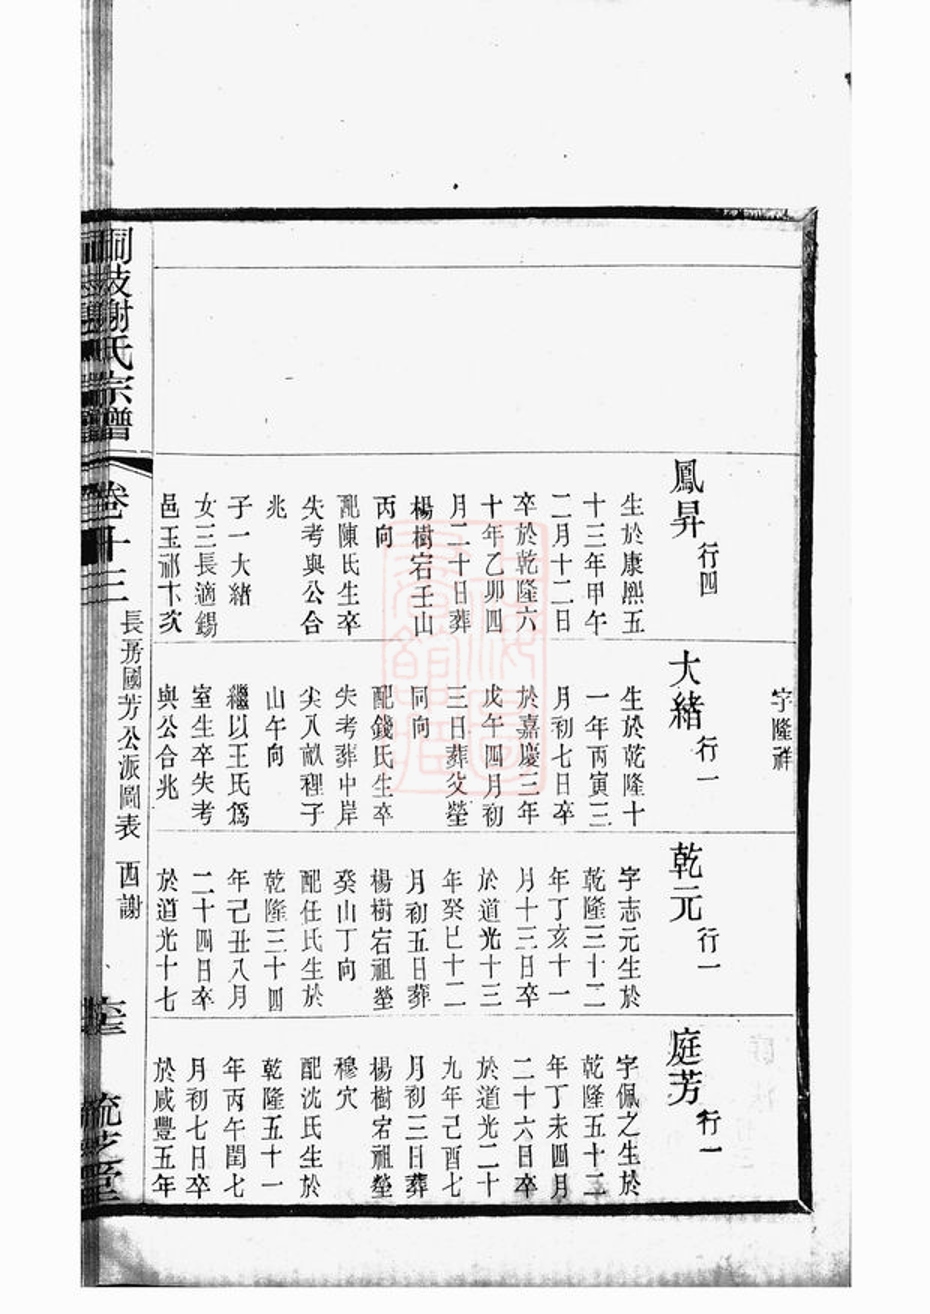 字隆祥
鳳昇 行四
生於康熙五
十三年甲午
二月十二日
卒於乾隆六
十年乙卯四
月二十日葬
楊樹宕壬山
丙向
配陳氏生卒
失考與公合
兆
子一大緒
女三長適錫
邑玉祁卞
大緒 行一
生於乾隆十
一年丙寅三
月初七日卒
於嘉慶三年
戊午四月初
三日葬父塋
同向
配錢氏生卒
失考葬中岸
尖八畝裡子
山午向
繼以王氏爲
室生卒失考
與公合兆
乾元 行一
字志元生於
乾隆三十二
年丁亥十一
月十三日卒
於道光十三
年癸巳十二
月初五日葬
楊樹宕祖塋
癸山丁向
配任氏生於
乾隆三十四
年己丑八月
二十四日卒
於道光十七
庭芳 行一
字佩之生於
乾隆五十二
年丁未四月
二十六日卒
於道光二十
九年己酉七
月初三日葬
楊樹宕祖塋
穆穴
配沈氏生於
乾隆五十一
年丙午閏七
月初七日卒
於咸豐五年
謝氏宗譜
卷十三
長房國芳公派圖表 西謝